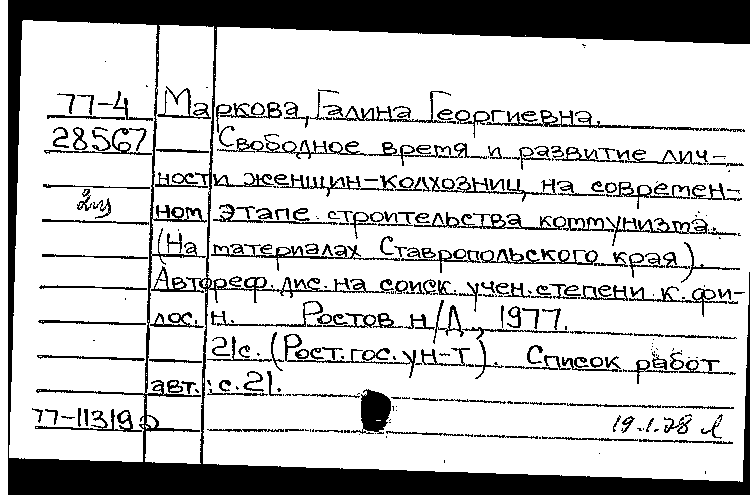 77-4 Маркова, Галина Георгиевна.
28567 Свободное время и развитие лич-
ности женщин-колхозниц на современ-
ном этапе строительства коммунизма.
(На материалах Ставропольского края).
Автореф. дис. на соиск. учен. степени к. фи-
лос. н. Ростов н/Д, 1977.
21с. (Рост. гос. ун-т). Список работ
авт.: с. 21.
77-11319 19.1.78